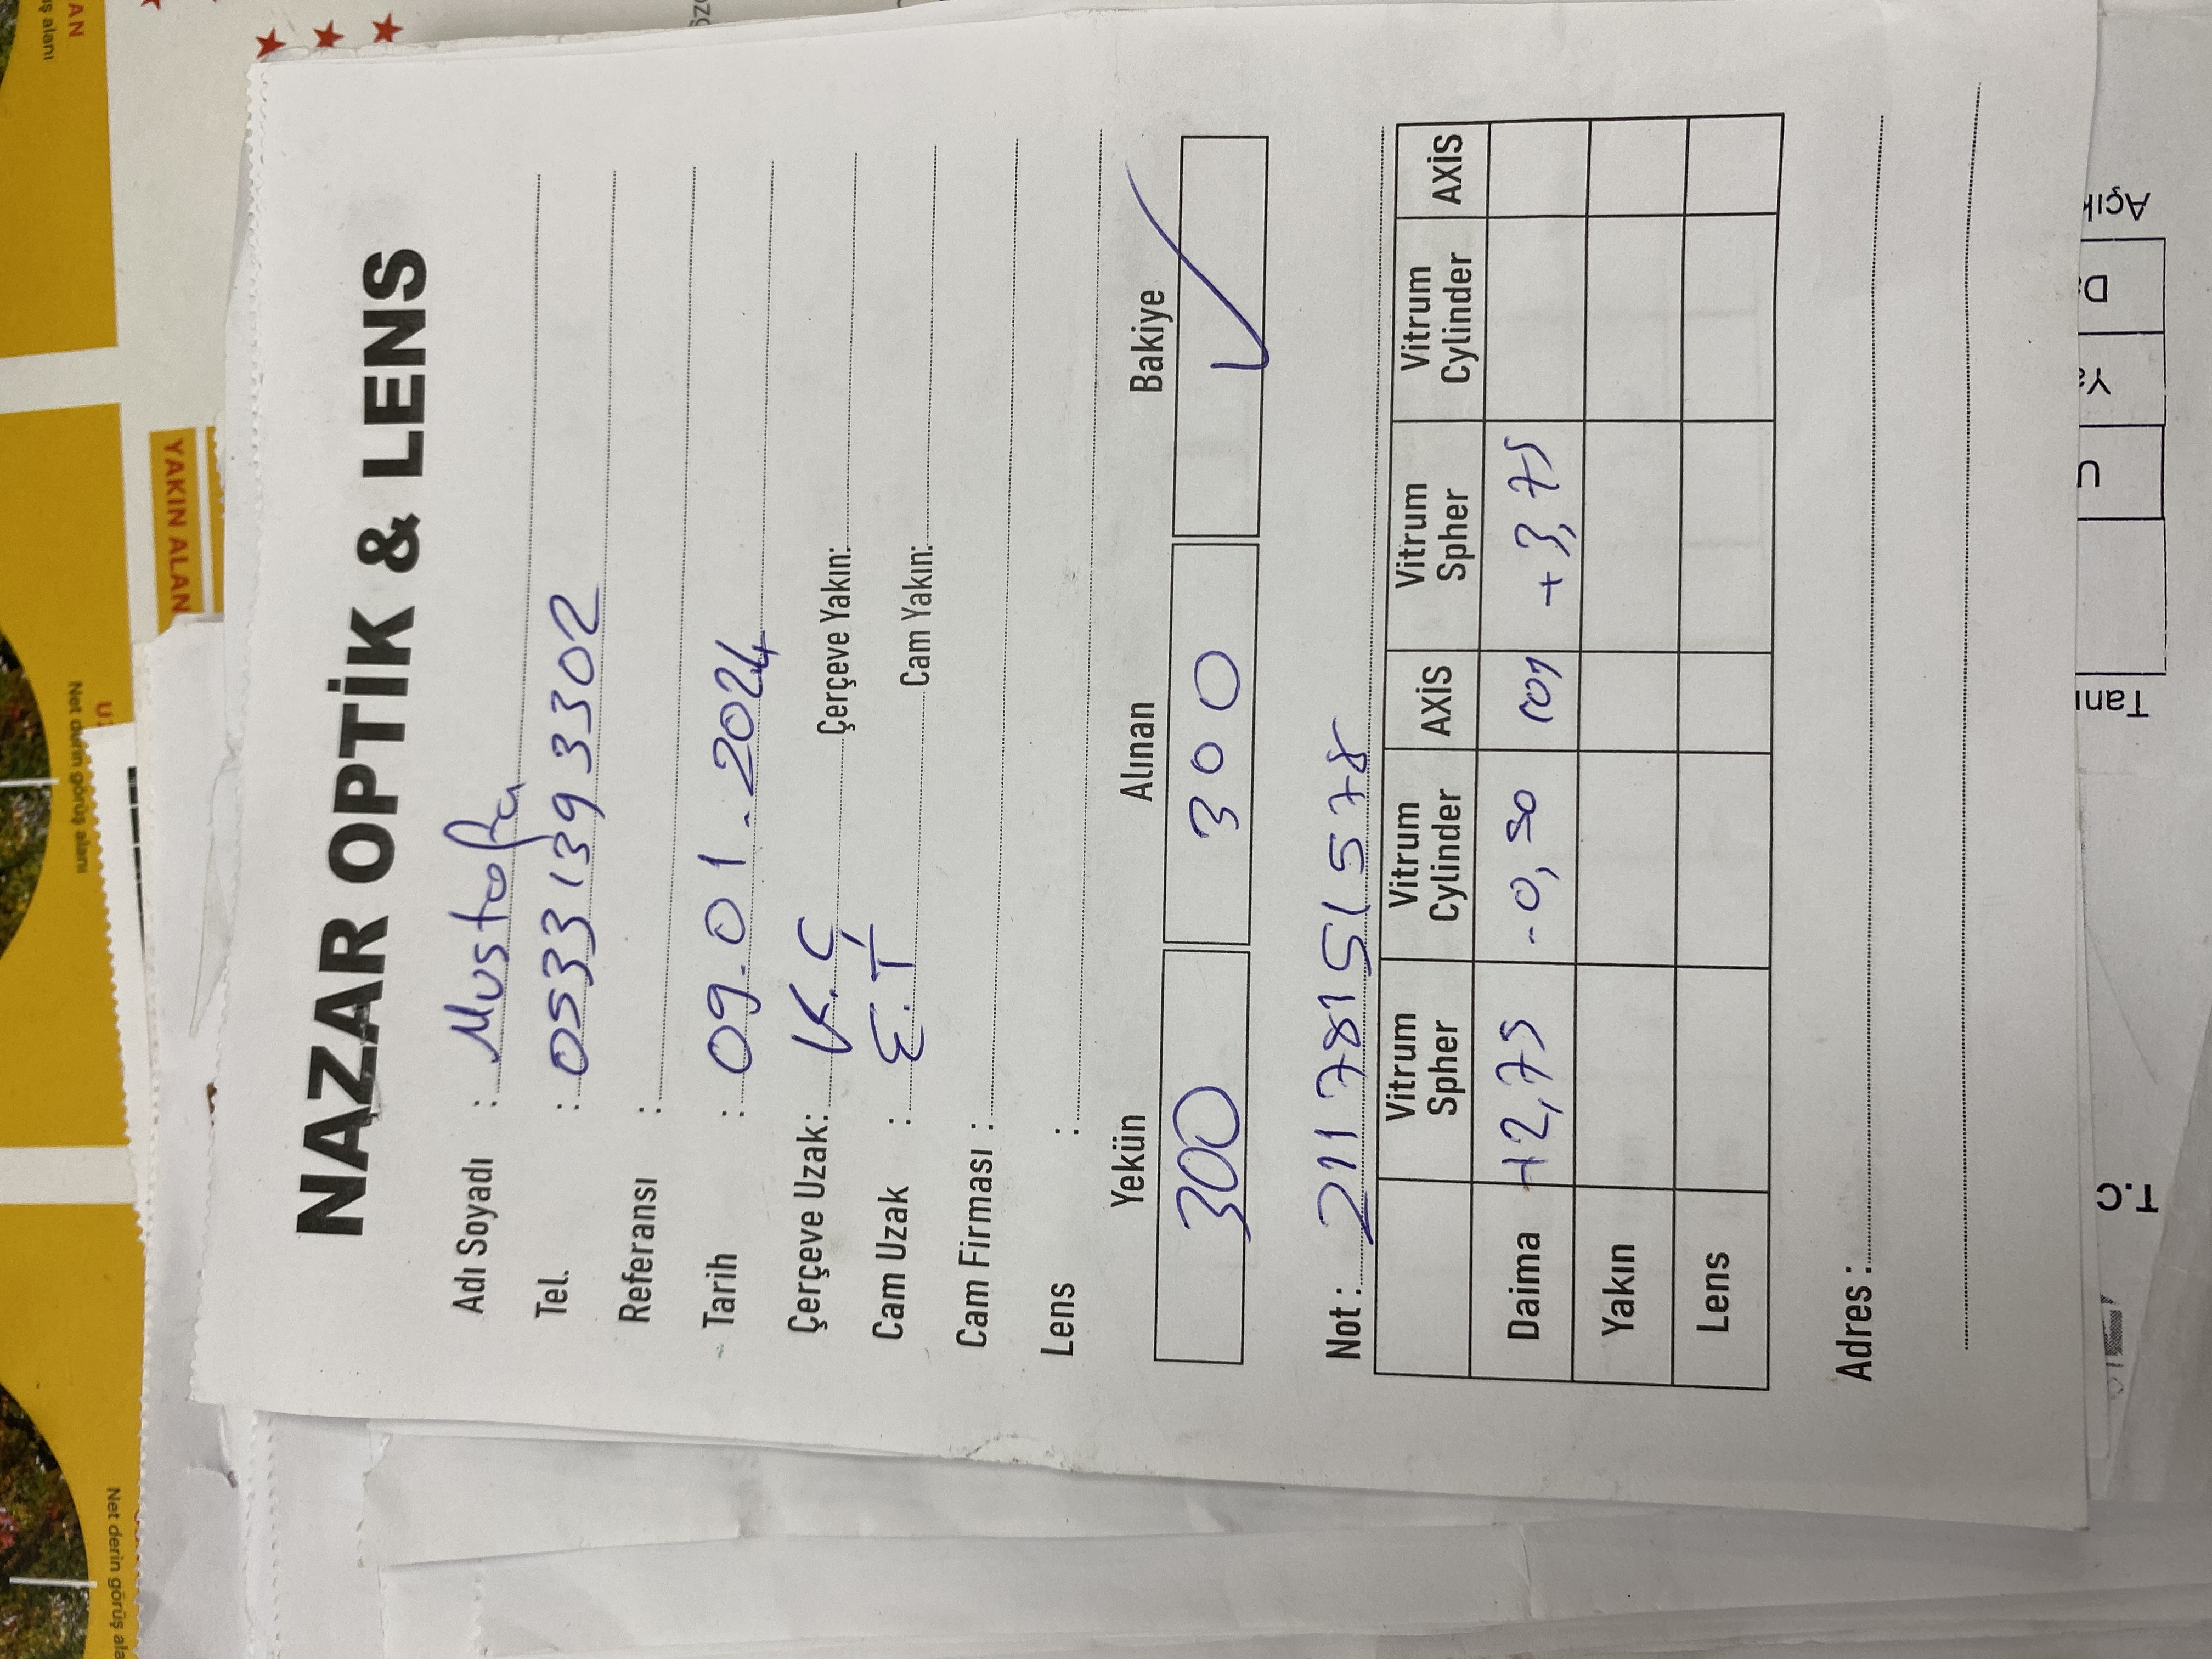 Net derin görüş ala
Net derin görüş alanı
ş alanı
YAKIN ALAN
NAZAR OPTİK & LENS
Adı Soyadı : Mustafa
Tel. : 05331393302
Referansı :
Tarih : 09.01.2024
Çerçeve Uzak: K.Ç Çerçeve Yakın:
Cam Uzak : E.T Cam Yakın:
Cam Firması :
Lens :
Yekün Alınan Bakiye
300 300 ✓
Not : 21178151578
Vitrum Spher Vitrum Cylinder AXİS Vitrum Spher Vitrum Cylinder AXİS
Daima +2,75 -0,50 101 +3,75
Yakın
Lens
Adres :
T.C
Tanı
U
Ya
D
Açık